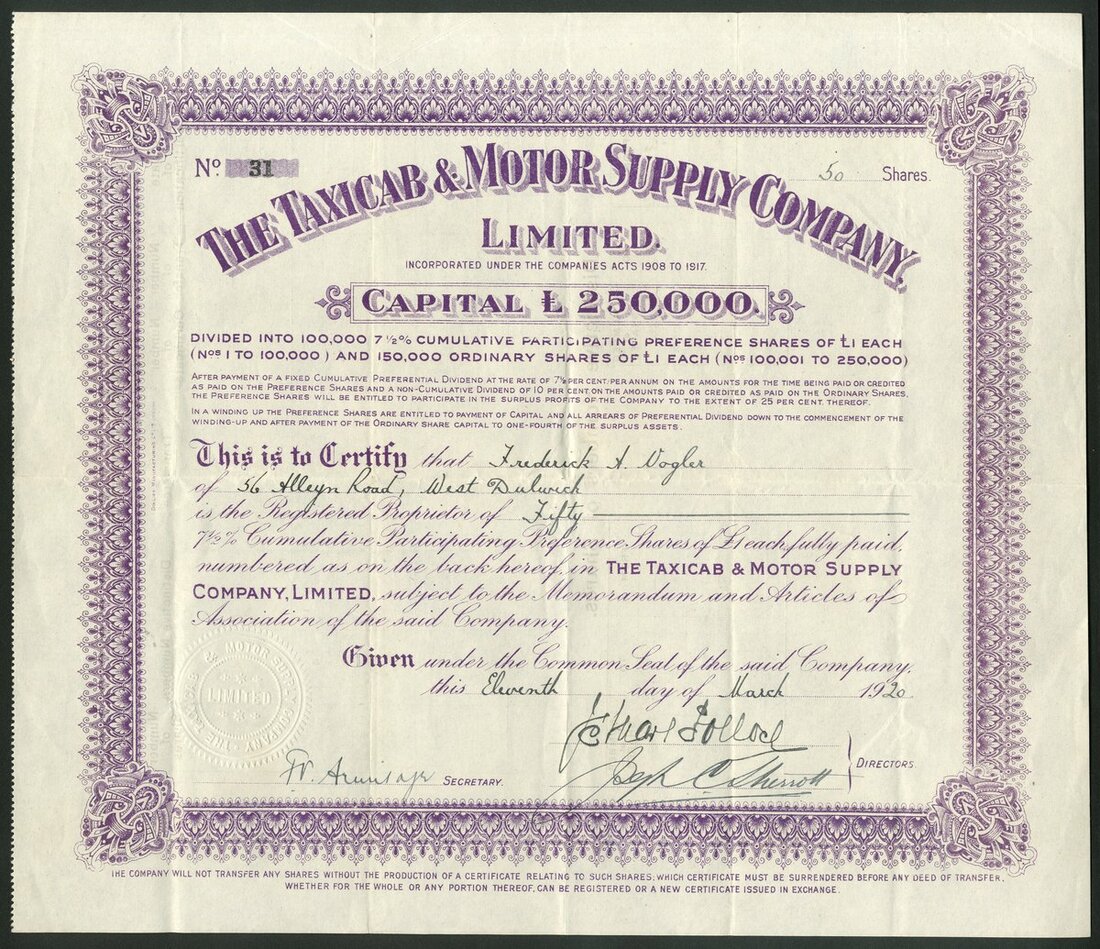 No. 31
50 Shares.
THE TAXICAB & MOTOR SUPPLY COMPANY,
LIMITED.
INCORPORATED UNDER THE COMPANIES ACTS 1908 TO 1917.
CAPITAL £250,000.
DIVIDED INTO 100,000 7½% CUMULATIVE PARTICIPATING PREFERENCE SHARES OF £1 EACH
(Nos 1 TO 100,000) AND 150,000 ORDINARY SHARES OF £1 EACH (Nos 100,001 TO 250,000)
AFTER PAYMENT OF A FIXED CUMULATIVE PREFERENTIAL DIVIDEND AT THE RATE OF 7½ PER CENT. PER ANNUM ON THE AMOUNTS FOR THE TIME BEING PAID OR CREDITED
AS PAID ON THE PREFERENCE SHARES AND A NON-CUMULATIVE DIVIDEND OF 10 PER CENT. ON THE AMOUNTS PAID OR CREDITED AS PAID ON THE ORDINARY SHARES,
THE PREFERENCE SHARES WILL BE ENTITLED TO PARTICIPATE IN THE SURPLUS PROFITS OF THE COMPANY TO THE EXTENT OF 25 PER CENT. THEREOF.
IN A WINDING UP THE PREFERENCE SHARES ARE ENTITLED TO PAYMENT OF CAPITAL AND ALL ARREARS OF PREFERENTIAL DIVIDEND DOWN TO THE COMMENCEMENT OF THE
WINDING-UP AND AFTER PAYMENT OF THE ORDINARY SHARE CAPITAL TO ONE-FOURTH OF THE SURPLUS ASSETS.
This is to Certify that Frederick A. Vogler
of 56 Alleyn Road, West Dulwich
is the Registered Proprietor of Fifty
7½% Cumulative Participating Preference Shares of £1 each, fully paid,
numbered as on the back hereof, in THE TAXICAB & MOTOR SUPPLY
COMPANY, LIMITED, subject to the Memorandum and Articles of
Association of the said Company.
Given under the Common Seal of the said Company,
this Eleventh day of March 1920
THE TAXICAB & MOTOR SUPPLY COMPANY
LIMITED
DIRECTORS.
W. Armitage SECRETARY.
THE COMPANY WILL NOT TRANSFER ANY SHARES WITHOUT THE PRODUCTION OF A CERTIFICATE RELATING TO SUCH SHARES: WHICH CERTIFICATE MUST BE SURRENDERED BEFORE ANY DEED OF TRANSFER,
WHETHER FOR THE WHOLE OR ANY PORTION THEREOF, CAN BE REGISTERED OR A NEW CERTIFICATE ISSUED IN EXCHANGE.